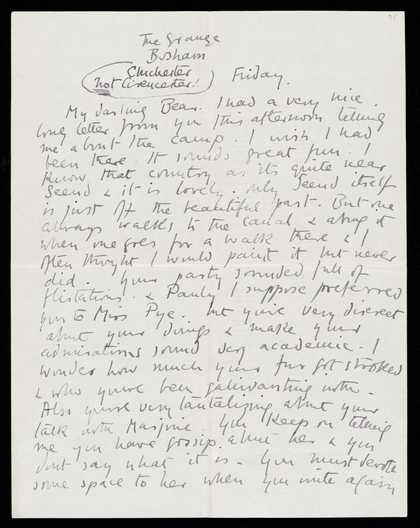 The Grange
Bosham
Chichester
not Cirencester!
Friday.
My darling Bear. I had a very nice
long letter from you this afternoon telling
me about the camp. I wish I had
been there. It sounds great fun. I
know that country as its quite near
Seend & it is lovely. only Seend itself
is just off the beautiful part. But one
always walks to the canal & along it
when one goes for a walk there & I
often thought I would paint it but never
did. Your party sounded full of
flirtations. & Pauly I suppose preferred
you to Miss Pye. but you're very discreet
about your doings & make your
admirations sound very academic. I
wonder how much your fur got stroked
& who you've been galivanting with.
Also you're very tantalizing about your
talk with Marjorie. You keep on telling
me you have gossip about her & you
dont say what it is. You must devote
some space to her when you write again